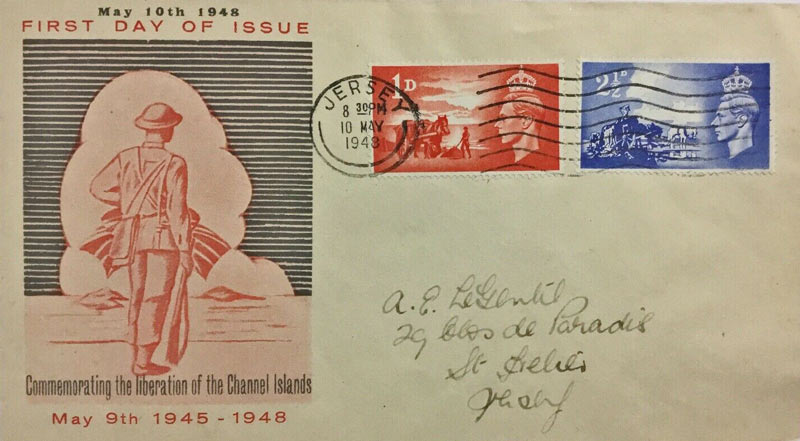 May 10th 1948
FIRST DAY OF ISSUE
1D
2½D
JERSEY
8 30PM
10 MAY
1948
Commemorating the liberation of the Channel Islands
May 9th 1945 - 1948
A. E. LeGentil
29 Clos de Paradis
St Helier
Jersey